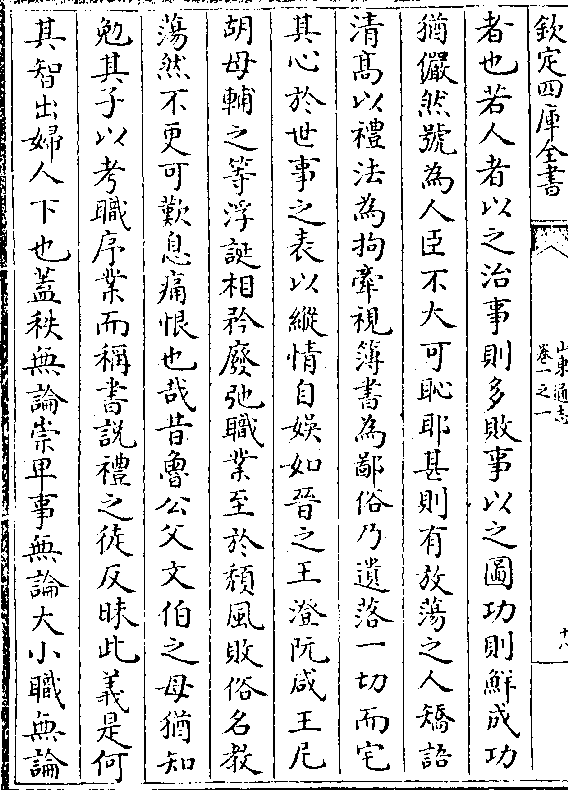 欽定四庫全書
山東通志
卷一之一
十八
者也若人者以之治事則多敗事以之圖功則鮮成功
猶儼然號為人臣不大可恥耶甚則有放蕩之人矯語
清髙以禮法為拘牽視簿書為鄙俗乃遺落一切而宅
其心於世事之表以縱情自娱如晉之王澄阮咸王尼
胡母輔之等浮誕相矜廢弛職業至於頽風敗俗名教
蕩然不更可歎息痛恨也哉昔魯公父文伯之母猶知
勉其子以考職序業而稱書説禮之徒反昧此義是何
其智出婦人下也蓋秩無論崇卑事無論大小職無論